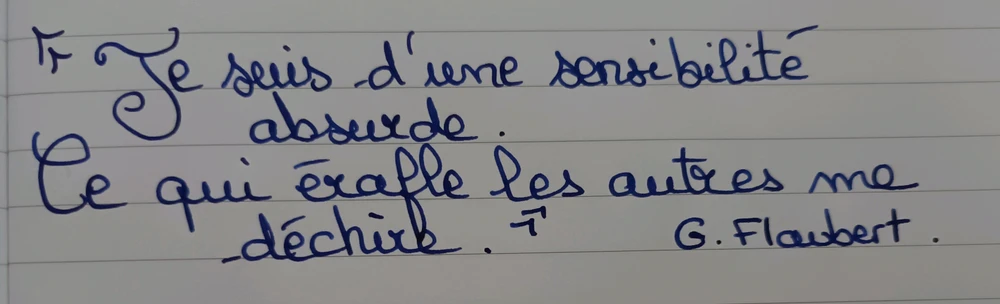 « Je suis d'une sensibilité
absurde.
Ce qui érafle les autres me
déchire. »
G. Flaubert.